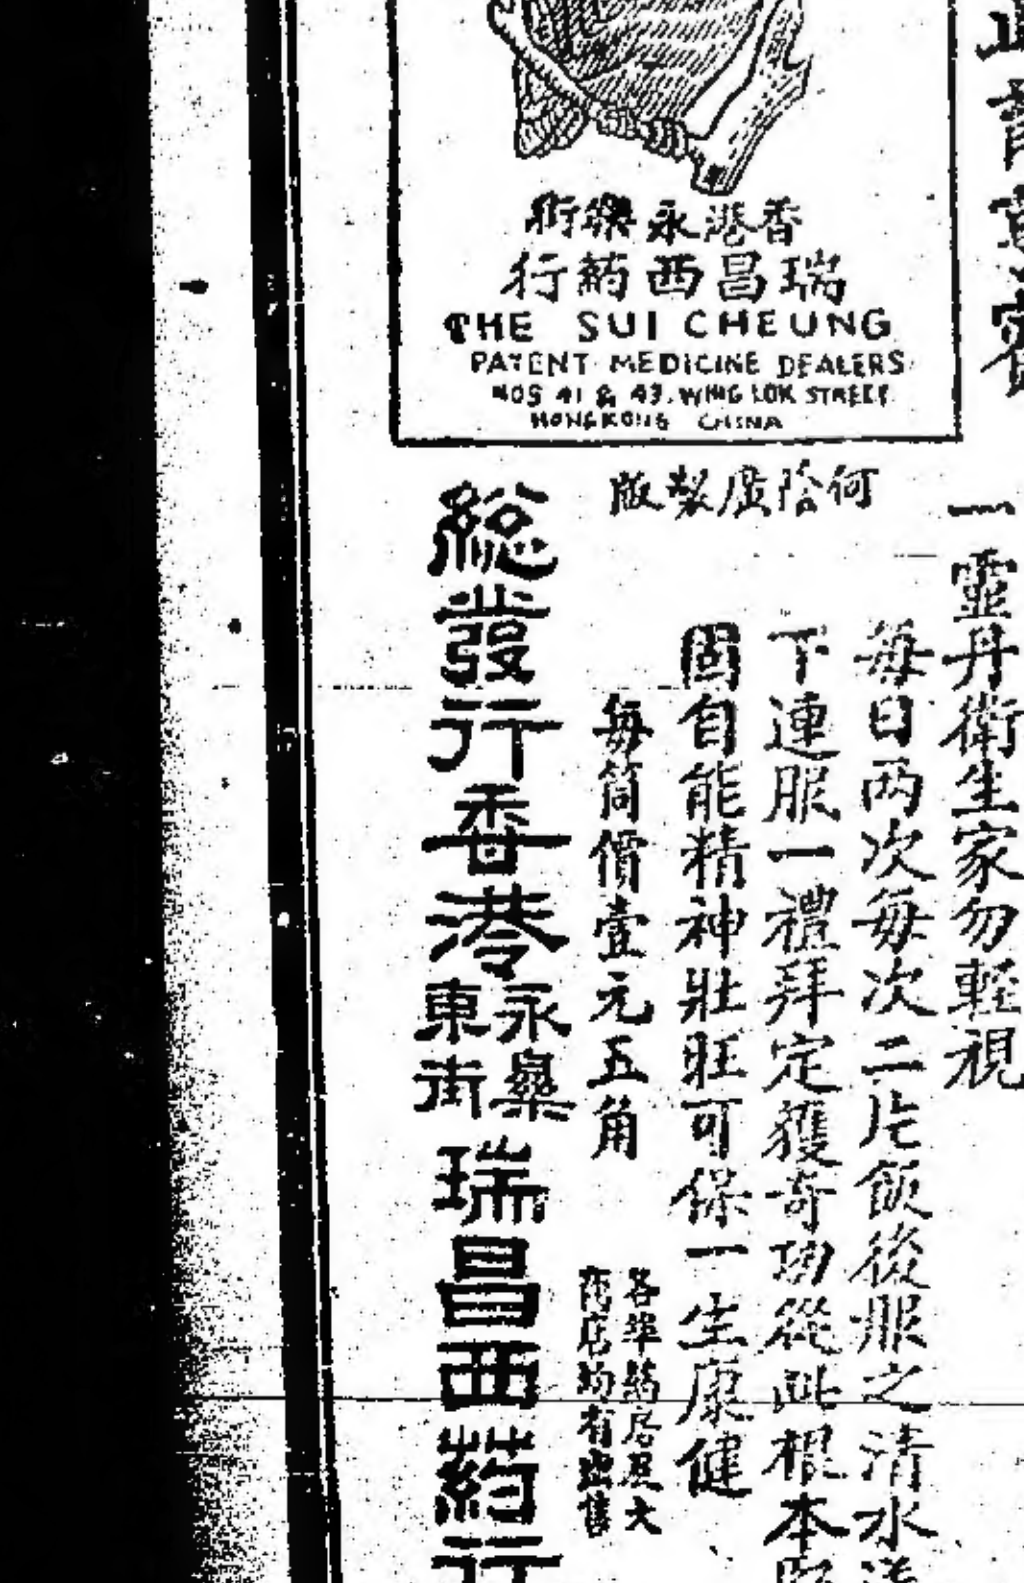 香港永樂街
瑞昌西葯行
THE SUI CHEUNG
PATENT MEDICINE DEALERS
NOS 41 & 43, WING LOK STREET
HONGKONG CHINA
何陰廣製版
一靈丹衛生家勿輕視
每日兩次每次二片飯後服之清水送
下連服一禮拜定獲奇功從此根本堅
固自能精神壯旺可保一生康健
每筒價壹元五角
各埠葯房及大
商店均有盡售
總發行香港永樂東街瑞昌西葯行